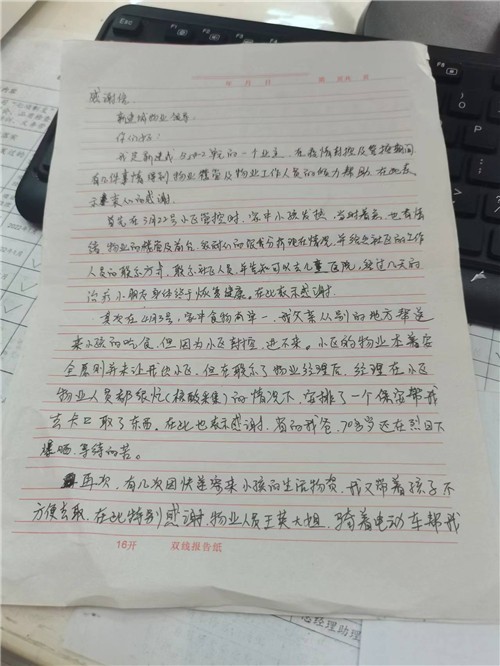 年 月 日
感谢信
新建城物业领导:
你们好:
我是新建城 单元的一个业主,在疫情封控及管控期间,
有几件事情得到物业经理及物业工作人员的倾力帮助,在此表
示衷心的感谢。
首先在3月22号小区管控时,家中小孩发热,当时着急,也有情
绪,物业的 经理及前台, 我们的 现在情况,并给出社区的工作
人员的联系方式,联系社区人员,并告知可以去儿童医院,经过几天的
治疗小朋友身体终于恢复健康。在此表示感谢.
其次在4月3号,家中食物有单一,我父亲从别的地方帮送
来小孩的吃食,但因为小区封控,进不来。小区的物业本着安
全原则并未让我出小区,但在联系了物业经理后,经理在小区
物业人员都很忙(核酸采集)的情况下,安排了一个保安帮我
去卡口取了东西。在此也表示感谢,省的我爸,70多岁还在烈日下
爆晒,等待的苦。
再次,有几次因快递寄来小孩的生活物资,我又带着孩子不
方便去取,在此特别感谢,物业人员王英大姐,骑着电动车帮我
16开 双线报告纸
总经理助理